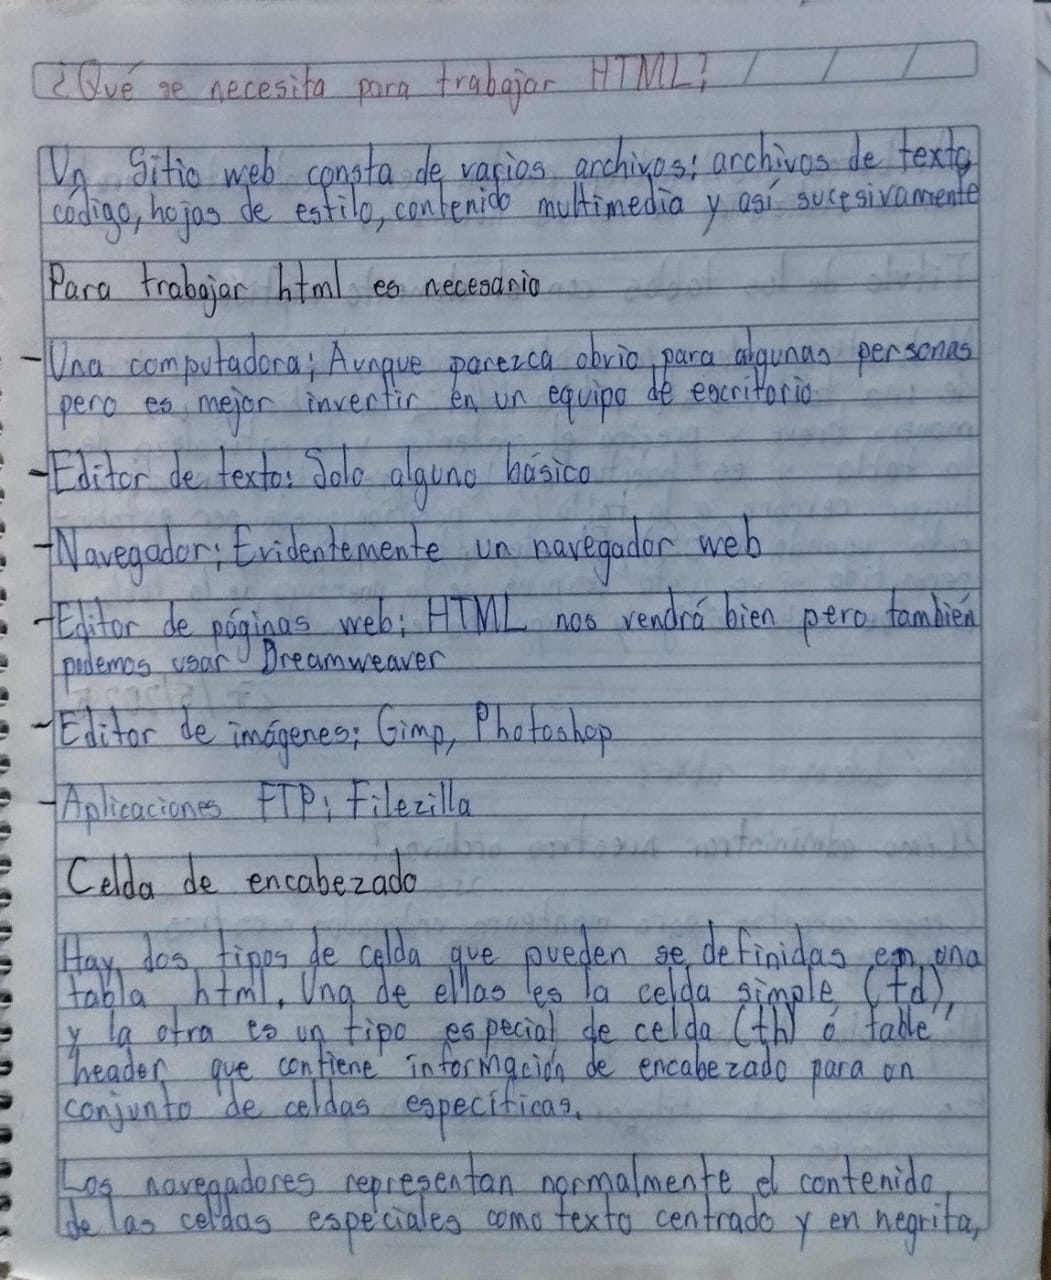 ¿Qué se necesita para trabajar HTML?
Un Sitio web consta de varios archivos; archivos de texto
código, hojas de estilo, contenido multimedia y así sucesivamente
Para trabajar html es necesario
- Una computadora; Aunque parezca obvio para algunas personas
pero es mejor invertir en un equipo de escritorio
- Editor de texto: Solo alguno básico
- Navegador; Evidentemente un navegador web
- Editor de páginas web; HTML nos vendrá bien pero también
podemos usar Dreamweaver
- Editor de imágenes; Gimp, Photoshop
- Aplicaciones FTP; Filezilla
Celda de encabezado
Hay dos tipos de celda que pueden se definidas en una
tabla html. Una de ellas es la celda simple (td),
y la otra es un tipo especial de celda (th) ó table"
header que contiene información de encabezado para un
conjunto de celdas específicas.
Los navegadores representan normalmente el contenido
de las celdas especiales como texto centrado y en negrita,